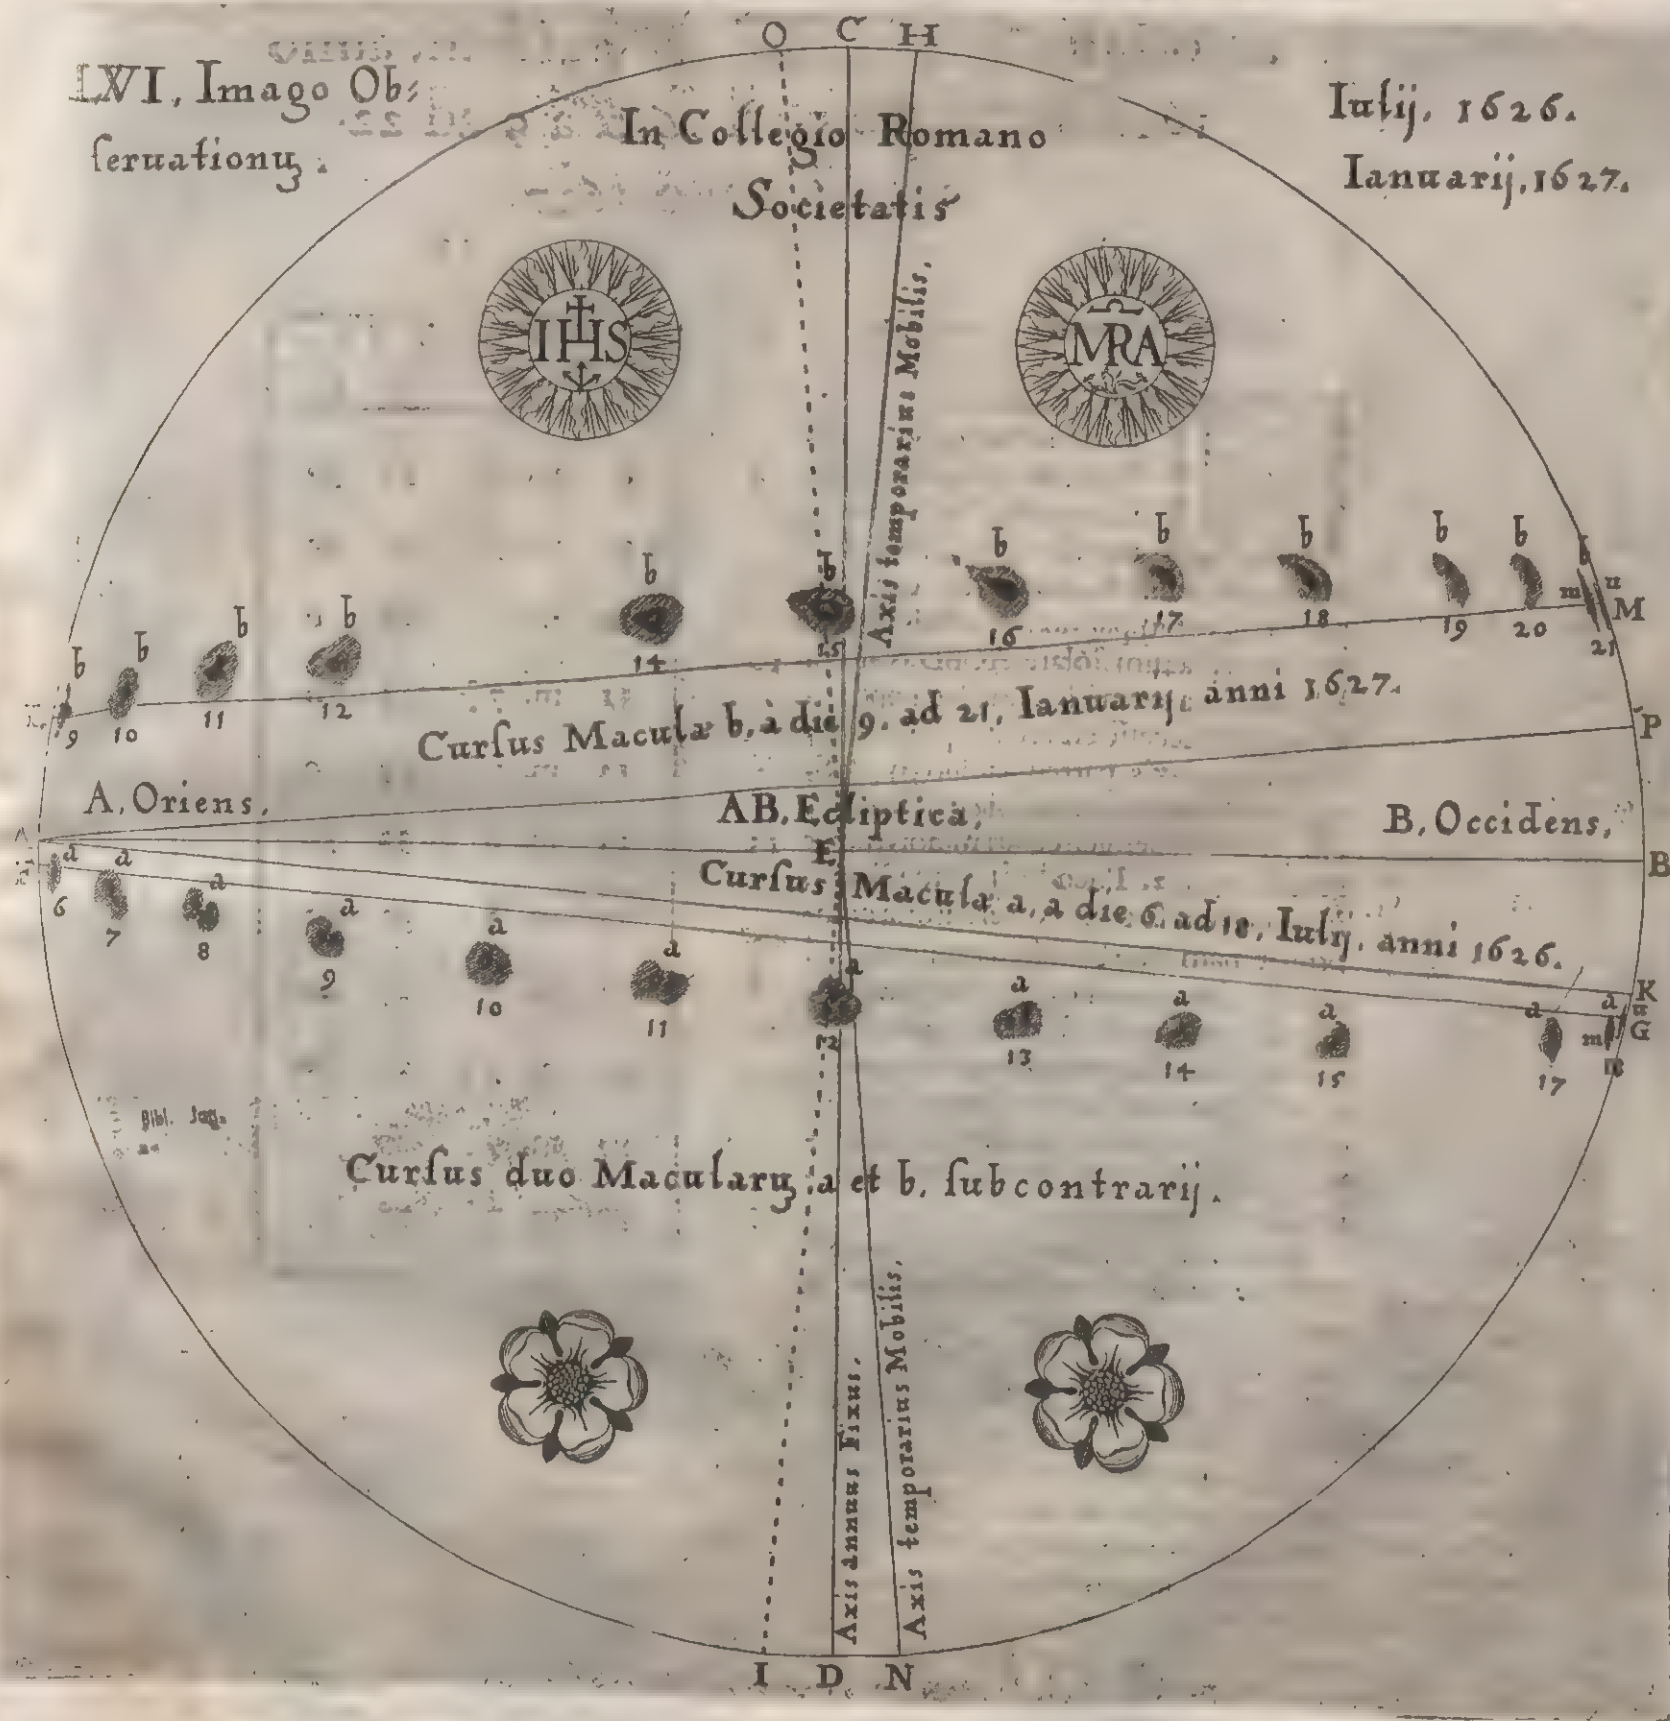 O C H
LVI, Imago Ob⸗
ſeruationuʒ.
Iulij. 1626.
Ianuarij, 1627.
In Collegio Romano
Societatis
IHS
MRA
Axis temporarius Mobilis,
b b b b b b b b b b b b
m n M
9 10 11 12 14 15 16 17 18 19 20 21
Curſus Maculæ b, à die 9. ad 21, Ianuarij, anni 1627.
P
A, Oriens,
AB, Ecliptica,
B, Occidens,
A
E
B
Curſus Maculæ a, a die 6 ad 18, Iulij, anni 1626.
a a a a a a a a a a a a
K
G
m
6 7 8 9 10 11 12 13 14 15 17
Bibl. Jag.
Curſus duo Macularuʒ a et b. ſubcontrarij.
Axis annuus Fixus,
Axis temporarius Mobilis,
I D N